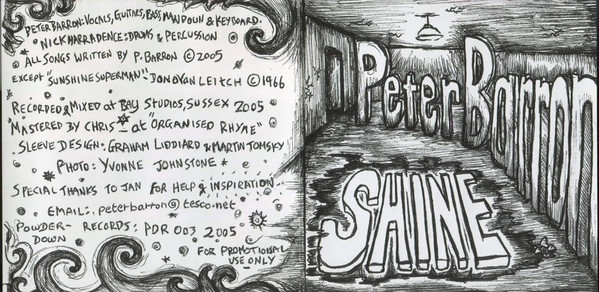 PETER BARRON: VOCALS, GUITARS, BASS MANDOLIN & KEYBOARD.
NICK HARRADENCE: DRUMS & PERCUSSION
ALL SONGS WRITTEN BY P. BARRON © 2005
EXCEPT "SUNSHINE SUPERMAN" DONOVAN LEITCH © 1966
RECORDED & MIXED at BAY STUDIOS, SUSSEX 2005
MASTERED BY CHRIS at "ORGANISED RHYME"
SLEEVE DESIGN: GRAHAM LIDDIARD & MARTIN TOMSKY
PHOTO: YVONNE JOHNSTONE
SPECIAL THANKS TO JAN FOR HELP & INSPIRATION
EMAIL: peterbarron@tesco.net
POWDER- RECORDS: PDR 003 2005
DOWN
FOR PROMOTIONAL
USE ONLY
Peter Barron
SHINE